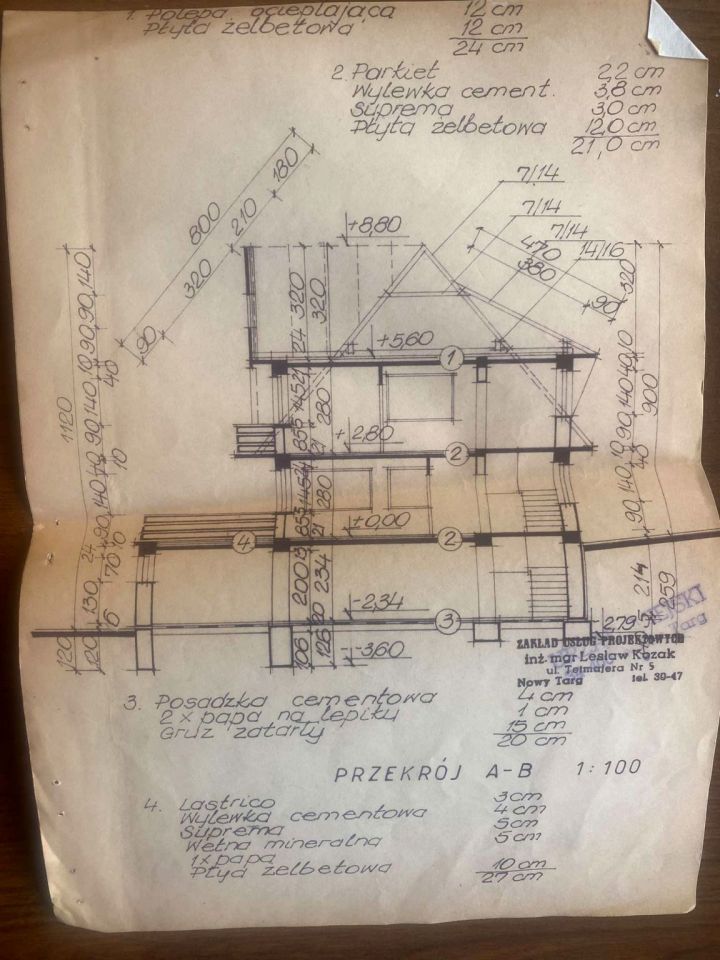 1. Polepa ocieplająca 12 cm
Płyta żelbetowa 12 cm
24 cm
2. Parkiet 2,2 cm
Wylewka cement. 3,8 cm
Suprema 3,0 cm
Płyta żelbetowa 12,0 cm
21,0 cm
7/14
7/14
7/14
14/16
800
180
210
320
90
470
380
90
+8,80
320
320
320
24
+5,60
1
1120
140
90
90
10
40
140
90
10
280
+2,80
2
900
280
±0,00
4
2
24
70
130
200
234
-2,34
3
214
259
2,79
120
20
106
126
20
-3,60
ZAKŁAD USŁUG PROJEKTOWYCH
inż. mgr Lesław Kozak
ul. Tetmajera Nr 5
Nowy Targ tel. 39-47
3. Posadzka cementowa 4 cm
2 x papa na lepiku 1 cm
Gruz zatarty 15 cm
20 cm
PRZEKRÓJ A-B 1:100
4. Lastrico 3 cm
Wylewka cementowa 4 cm
Suprema 5 cm
Wełna mineralna 5 cm
1 x papa
Płyta żelbetowa 10 cm
27 cm